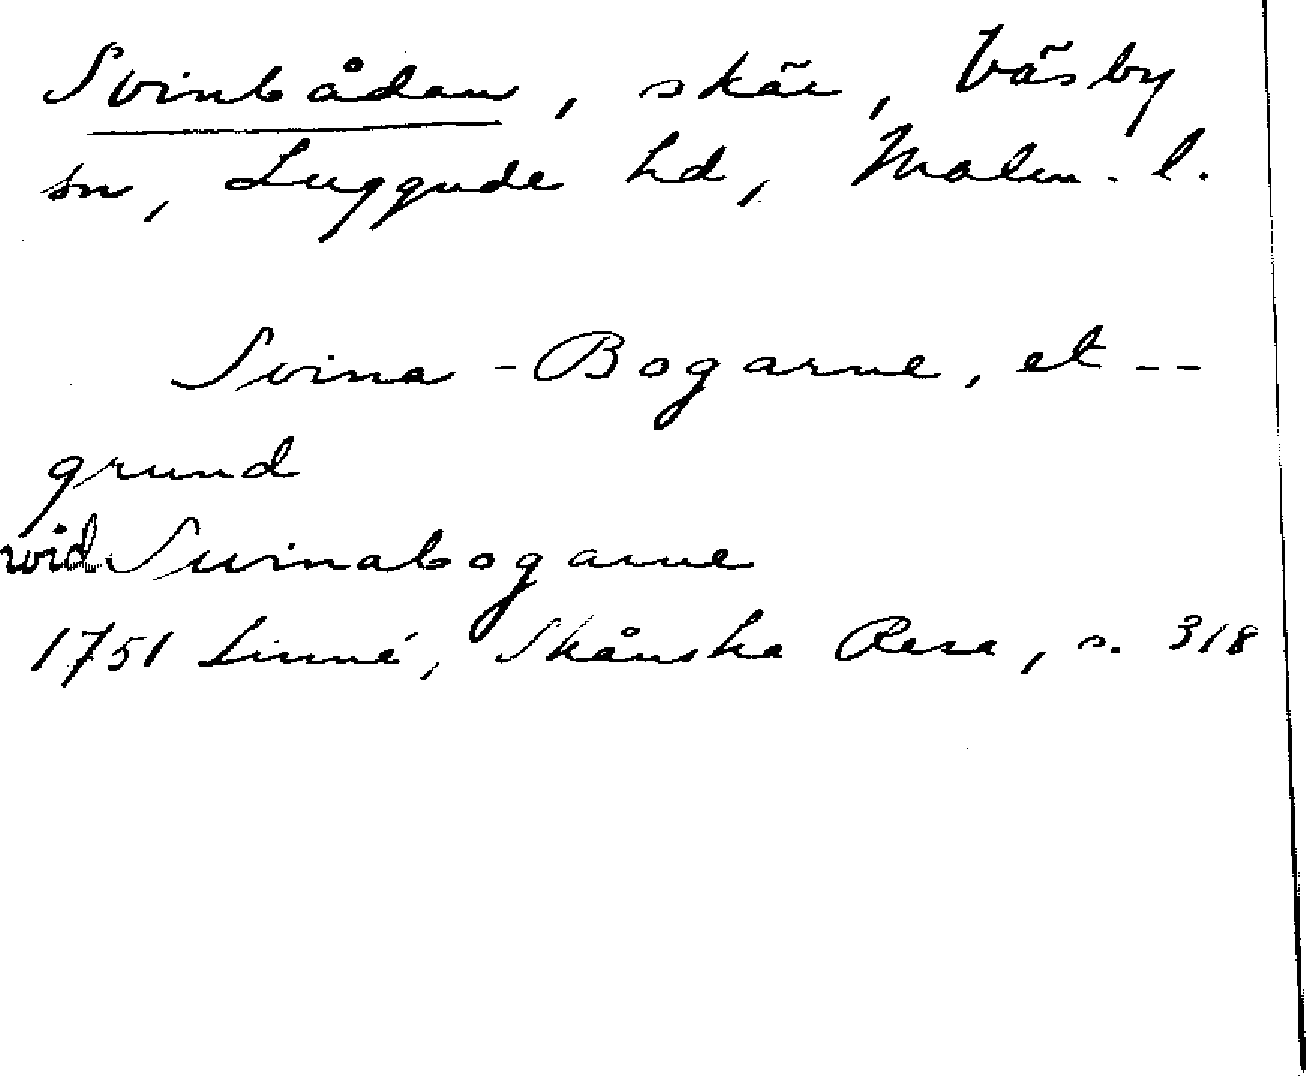 Svinbådan, skär, Väsby
sn, Luggude hd, Malm. l.
Svina-Bogarne, et --
grund
wid Svinabogarne
1751 Linné, Skånska Resa, s. 318